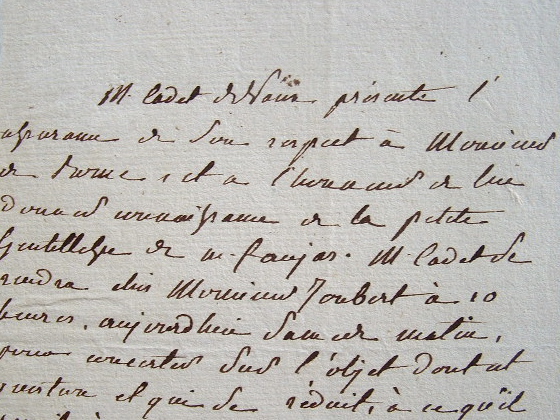 M. Cadet deVaux présente l'
assurance de son respect à Monsieur
de Surme, et a l'honneur de lui
donner connaissance de la petite
Gentillesse de m. faujas. M. Cadet se
rendra chés Monsieur Joubert à 10
heures, aujourd'hui Samedi matin,
pour concerter sur l'objet dont est
question et qui se réduit, à ce qu'il